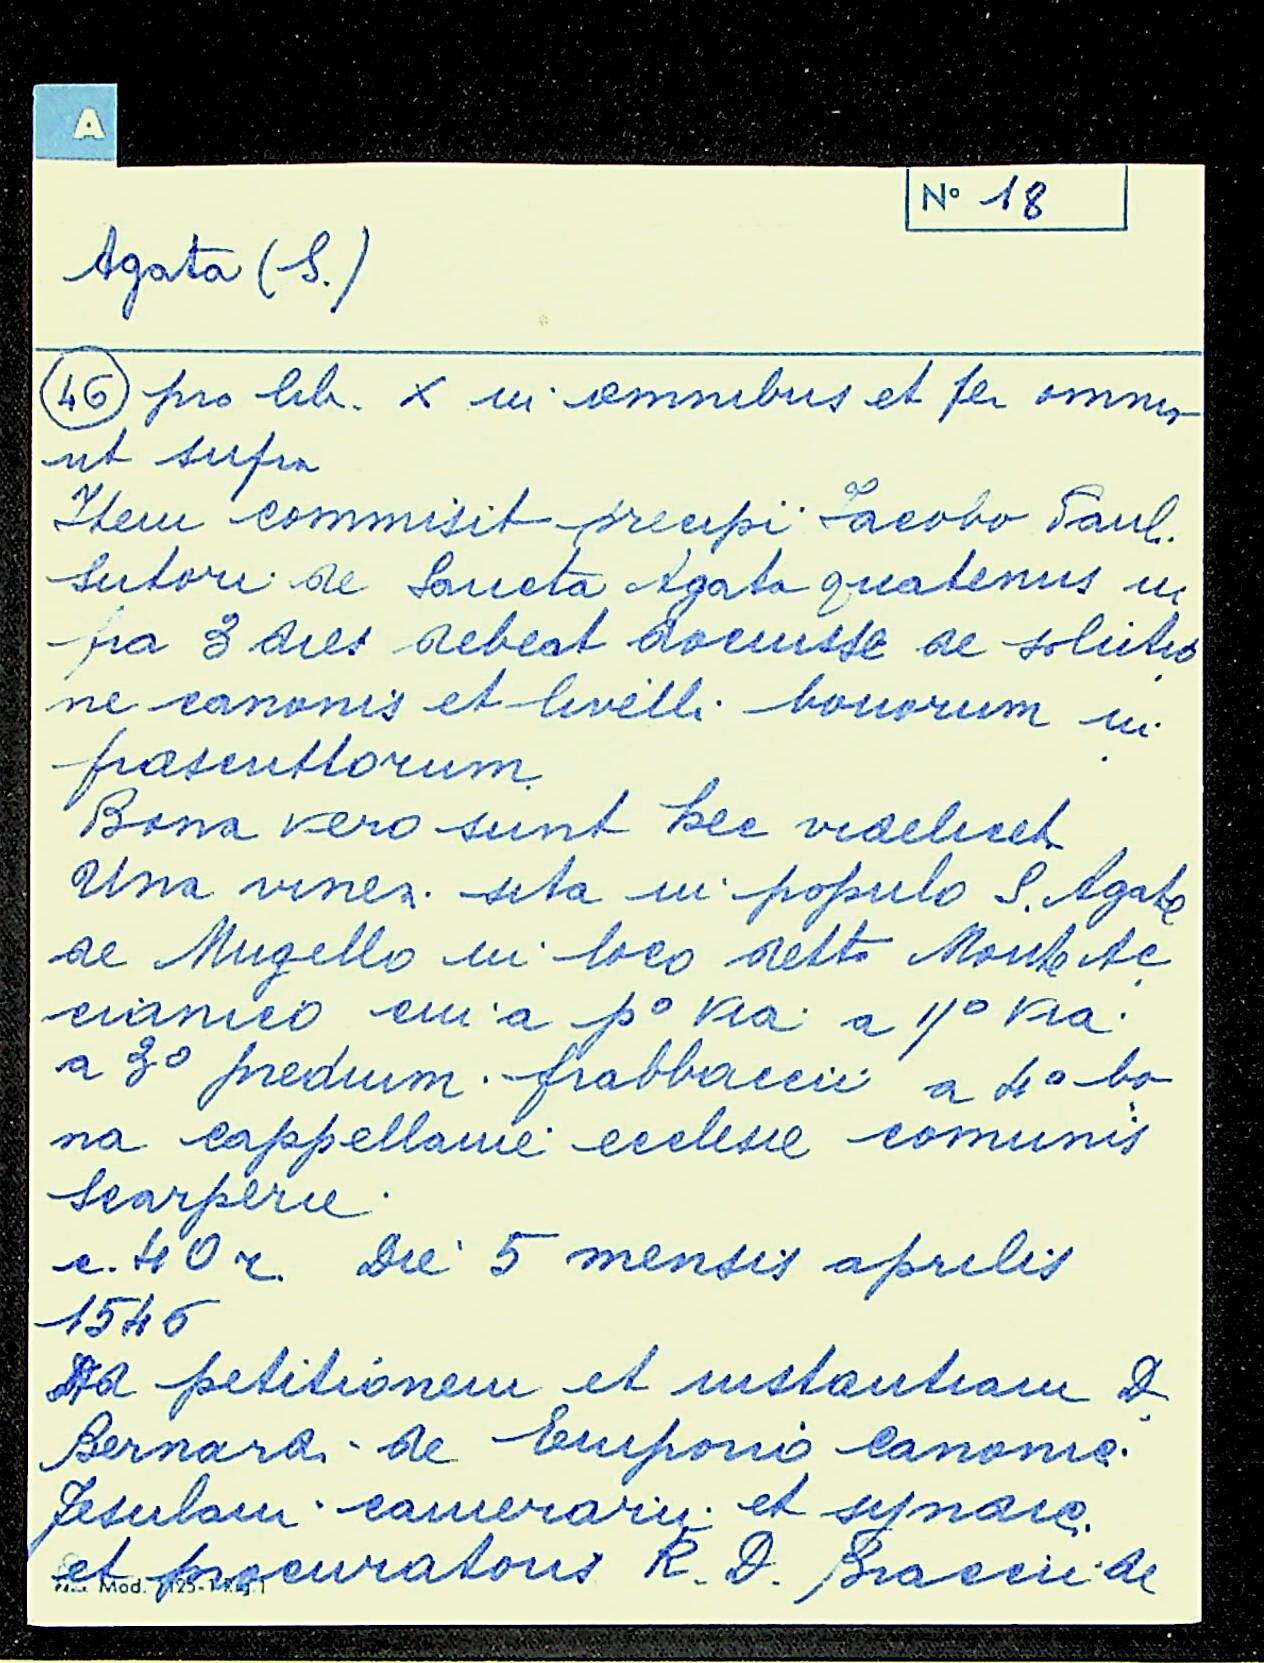 A
Nº 18
Agata (S.)
46 pro lib. X in omnibus et per omnia
ut supra
Item commisit precipi Jacobo Paul.
sutori de Sancta Agata quatenus in
fra 3 dies debeat docuisse de solutio
ne canonis et livelli bonorum in
frascriptorum
Bona vero sunt hec videlicet
Una vinea sita in populo S. Agate
de Mugello in loco detto Monte Ac
cianico cui a pº via a 11º via
a 3º predium frabbaccii a 4º bo
na cappellanie ecclesie comunis
Scarperie
c. 40 r. Die 5 mensis aprilis
1546
Ad petitionem et instantiam D.
Bernardi de Emporio canonic.
Fesulam camerarii et syndic.
et procuratoris R. D. Braccii de
Mod.